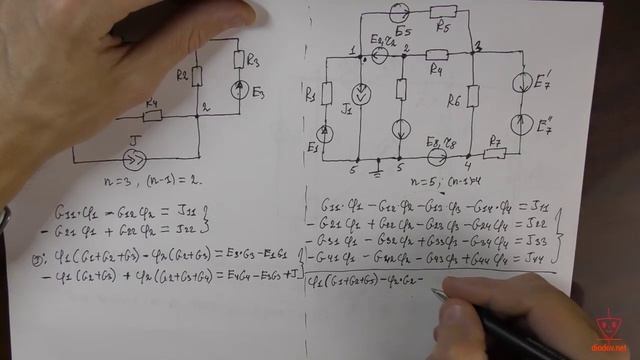 R2
R3
E3
R4
2
J
n=3 ; (n-1)=2.
G11·φ1 - G12φ2 = J11
- G21φ1 + G22φ2 = J22
φ1(G1+G2+G3) - φ2(G2+G3) = E3·G3-E1G1
- φ1(G2+G3) + φ2(G2+G3+G4) = E4G4-E3G3+J
E5
R5
1
E2,r2
2
3
R1
J1
R4
R6
E7'
E7''
E1
5
5
E8,r8
4
R7
n=5 ; (n-1)=4
G11·φ1 - G12φ2 - G13φ3 - G14·φ4 = J11
- G21φ1 + G22φ2 - G23φ3 - G24φ4 = J22
- G31φ1 - G32φ2 + G33φ3 - G34φ4 = J33
- G41φ1 - G42φ2 - G43φ3 + G44φ4 = J44
φ1(G1+G2+G5) - φ2·G2 -
diodov.net